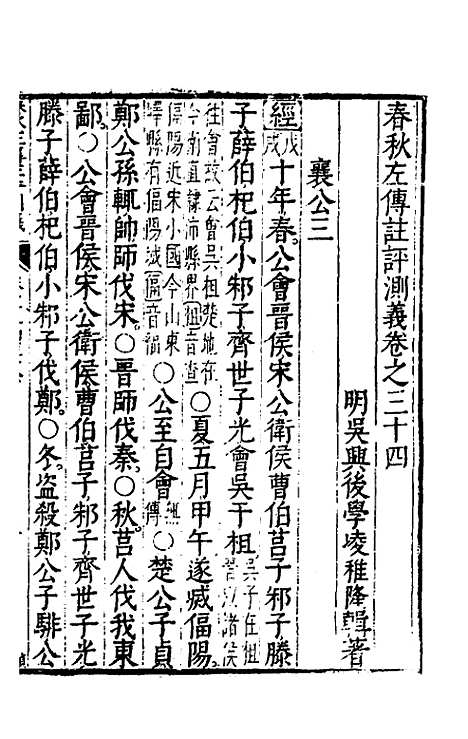 春秋左傳註評測義卷之三十四
明吳興後學凌稚隆輯著
襄公三
經戊戌十年春公會晉侯宋公衛侯曹伯莒子邾子滕
子薛伯杞伯小邾子齊世子光會吳于柤吳子在柤晉以諸侯
往會故云會吳柤楚地在今
偪陽近宋小國今山東嶧縣有偪陽城偪音福
〇夏五月甲午遂滅偪陽
〇公至自會無傳〇楚公子貞
鄭公孫輒帥師伐宋〇晉師伐秦〇秋莒人伐我東
鄙〇公會晉侯宋公衛侯曹伯莒子邾子齊世子光
滕子薛伯杞伯小邾子伐鄭〇冬盜殺鄭公子騑公